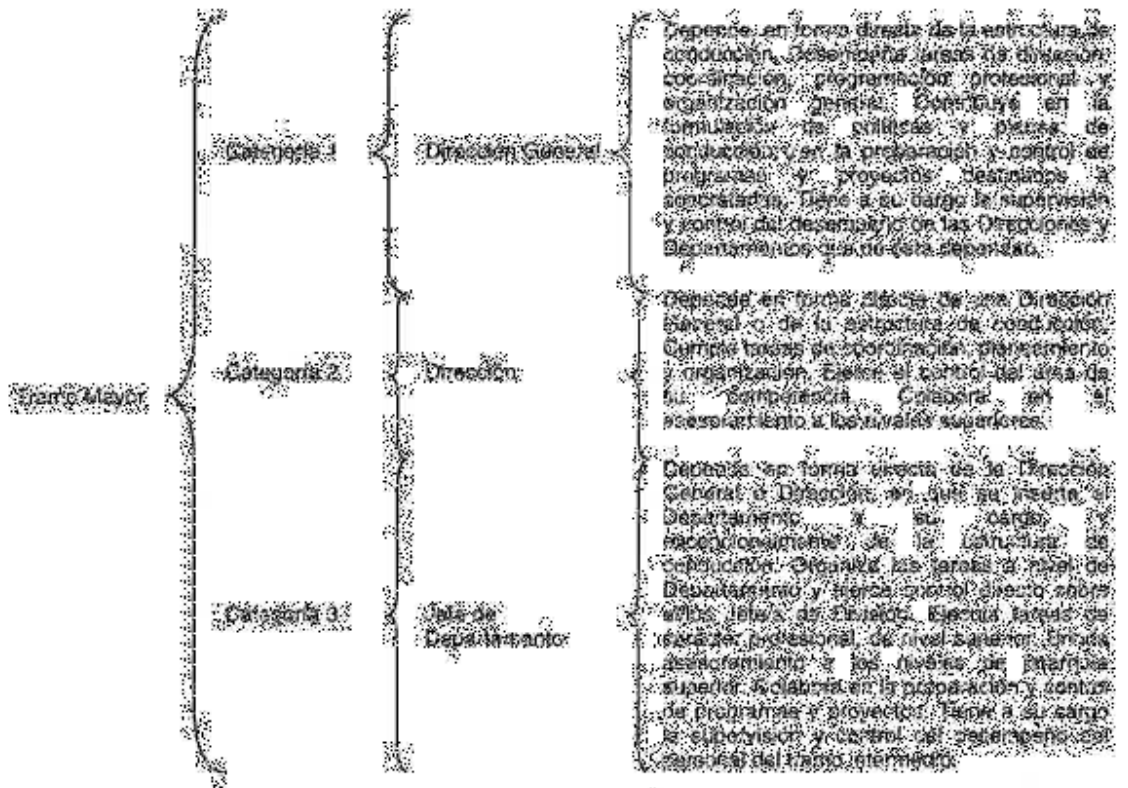 Tramo Mayor
Categoría 1
Dirección General
Depende en forma directa de la estructura de
conducción. Desempeña tareas de dirección,
coordinación, programación profesional y
organización general. Contribuye en la
formulación de políticas y planes de
conducción y en la preparación y control de
programas y proyectos destinados a
concretarlas. Tiene a su cargo la supervisión
y control del desempeño de las Direcciones y
Departamentos que de ésta dependan.
Categoría 2
Dirección
Depende en forma directa de una Dirección
General o de la estructura de conducción.
Cumple tareas de coordinación, planeamiento
y organización. Ejerce el control del área de
su competencia. Colabora en el
asesoramiento a los niveles superiores.
Categoría 3
Jefe de
Departamento
Depende en forma directa de la Dirección
General o Dirección en que se inserta el
Departamento a su cargo y
excepcionalmente de la estructura de
conducción. Organiza las tareas a nivel de
Departamento y ejerce control directo sobre
el/los Jefe/s de División. Ejecuta tareas de
carácter profesional de nivel superior. Brinda
asesoramiento a los niveles de jerarquía
superior. Colabora en la preparación y control
de programas y proyectos. Tiene a su cargo
la supervisión y control del desempeño del
personal del tramo intermedio.